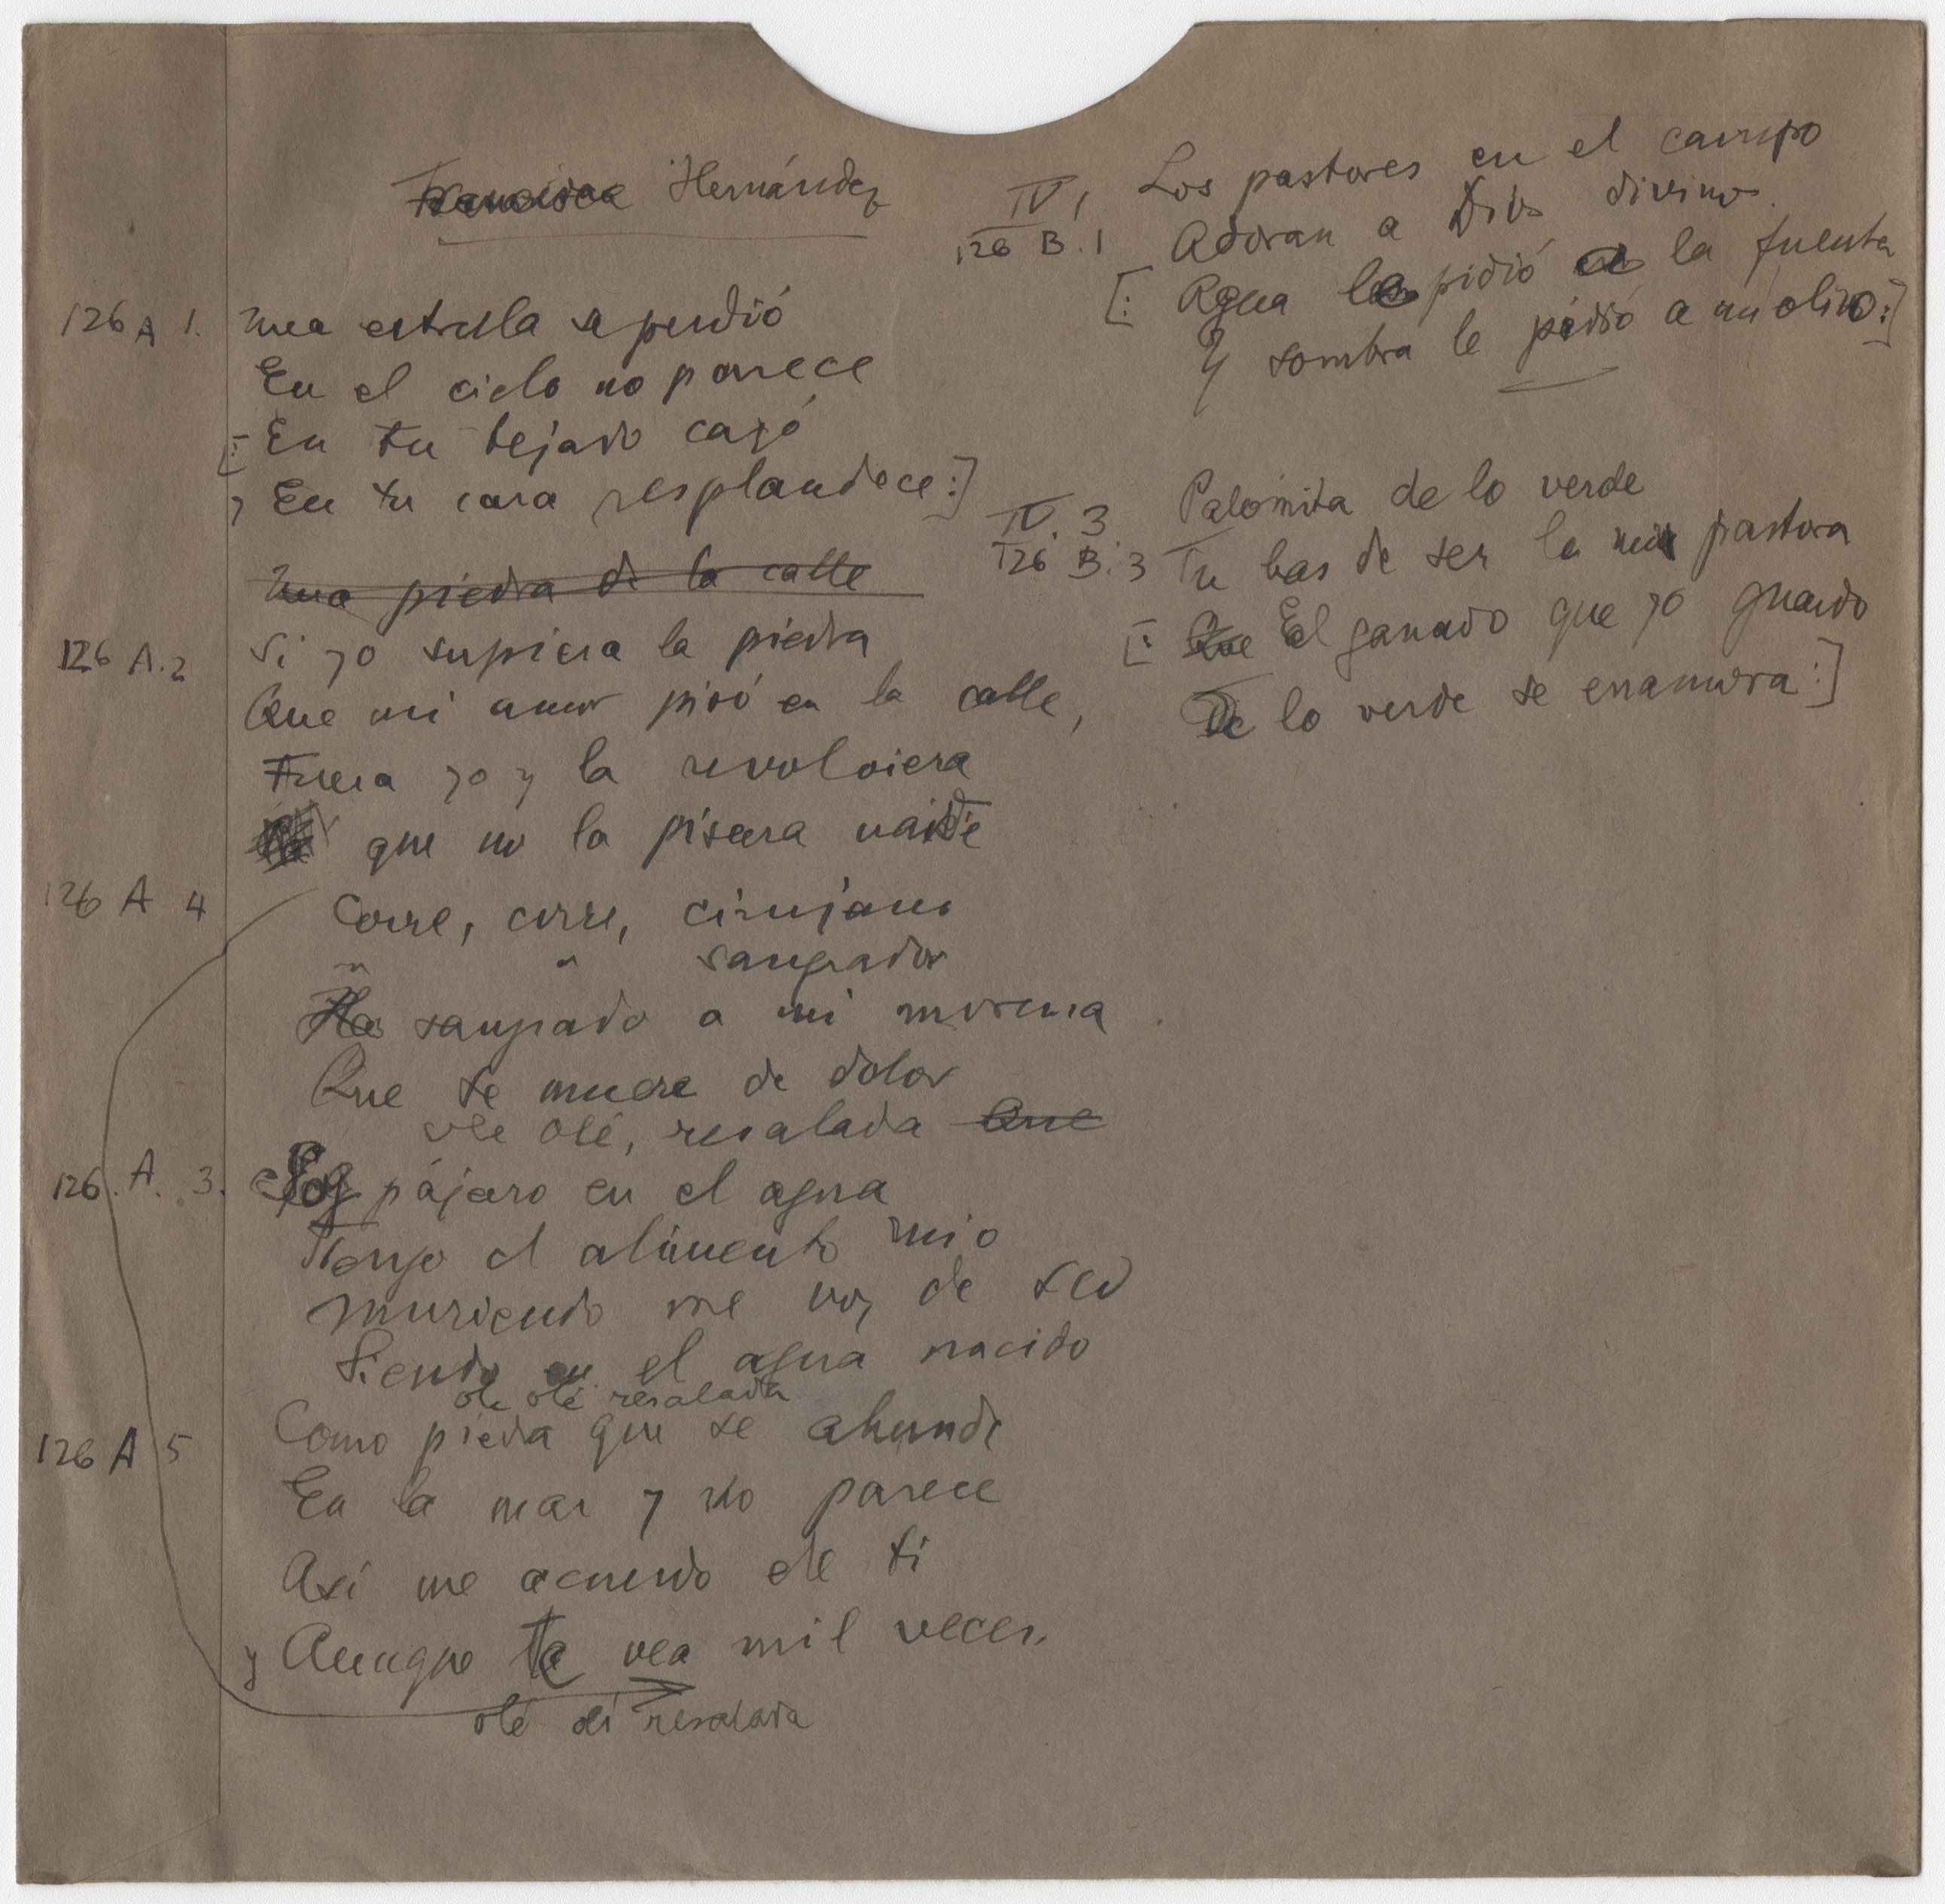 Francisca Hernández
126 A 1. Una estrella se perdió
En el cielo no parece
[: En tu tejado cayó
y En tu cara resplandece :]
Una piedra de la calle
126 A.2 Si yo supiera la piedra
Que mi amor pisó en la calle,
Fuera yo y la revolviera
que no la pisara naide
126 A 4 Corre, corre, cirujano
" " sangrador
sangrado a mi morena
Que se muere de dolor
ole olé, resalada Que
126. A. 3. pájaro en el agua
Tengo el alimento mio
Muriendo me voy de sed
Siendo en el agua nacido
ole olé resalada
126 A 5 Como piedra que se ahunde
En la mar y no parece
Así me acuerdo de ti
y Aunque te vea mil veces.
olé di resalada
IV, 1
126 B. 1
Los pastores en el campo
Adoran a Dios divino.
[: Agua le pidió a la fuente
Y sombra le pidió a un olivo :]
IV. 3
126 B. 3
Palomita de lo verde
Tu has de ser la mia pastora
[: Que El ganado que yo guardo
De lo verde se enamora :]